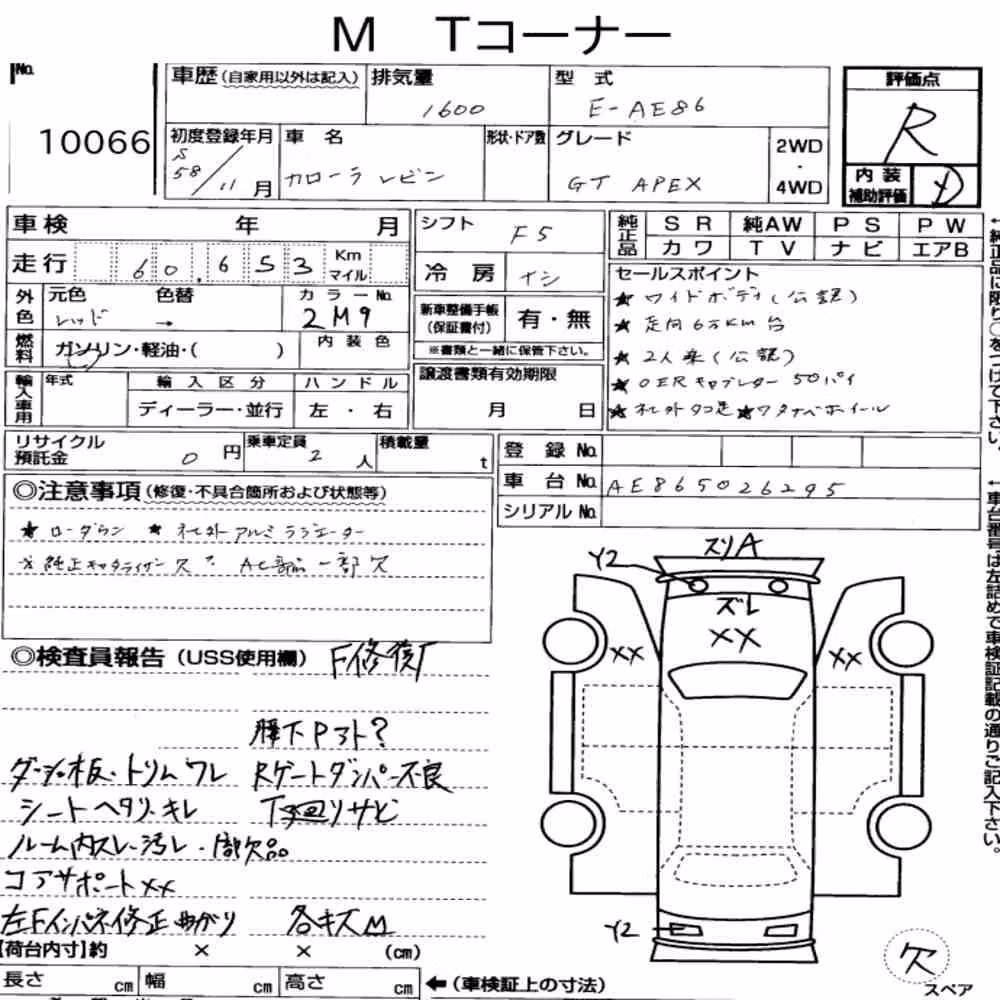 M Tコーナー
No.
10066
車歴(自家用以外は記入)
排気量
1600
型式
E-AE86
評価点
R
初度登録年月
S
58/11月
車名
カローラレビン
形状・ドア数
グレード
GT APEX
2WD
・
4WD
内装
補助評価
D
車検 年 月
シフト
F5
純正品
SR 純AW PS PW
カワ TV ナビ エアB
走行 60,653 Km
マイル
冷房 ナシ
セールスポイント
★ワイドボディ(公認)
★走向6万KM台
★2人乗(公認)
★OERキャブレター 50パイ
★社外タコ足★ワタナベホイール
外色
元色 色替 カラーNo.
レッド → 2M9
新車整備手帳
(保証書付)
有・無
※書類と一緒に保管下さい。
燃料
ガソリン・軽油・( )
内装色
輸入車用
年式
輸入区分
ハンドル
ディーラー・並行
左・右
譲渡書類有効期限
月 日
リサイクル
預託金
0円
乗車定員
2人
積載量
t
登録No.
車台No.
AE865026295
シリアルNo.
◎注意事項(修復・不具合箇所および状態等)
★ローダウン ★社外アルミラジエーター
☆純正キャタライザー欠 AC部品一部欠
←純正品に限り○をつけて下さい。
←車台番号は左詰めで車検証記載の通りご記入下さい。
◎検査員報告(USS使用欄) F修復歴
腰下Pアト?
ダッシュ板・トリムワレ Rゲートダンパー不良
シートヘタリ・キレ 下廻りサビ
ルーム内スレ・汚レ・一部欠品
コアサポートXX
左Fインパネ修正曲がり 各キズM
Y2
スリA
ズレ
XX
XX
XX
Y2
欠
スペア
【荷台内寸】約 × × (cm)
長さ cm 幅 cm 高さ cm
←(車検証上の寸法)